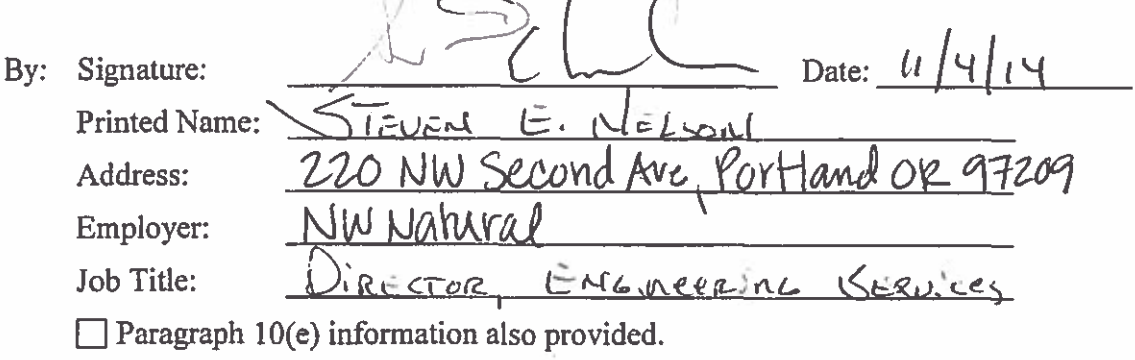 By: Signature: Date: 11/4/14
Printed Name: STEVEN E. NELSON
Address: 220 NW Second Ave, Portland OR 97209
Employer: NW Natural
Job Title: DIRECTOR, ENGINEERING SERVICES
☐ Paragraph 10(e) information also provided.